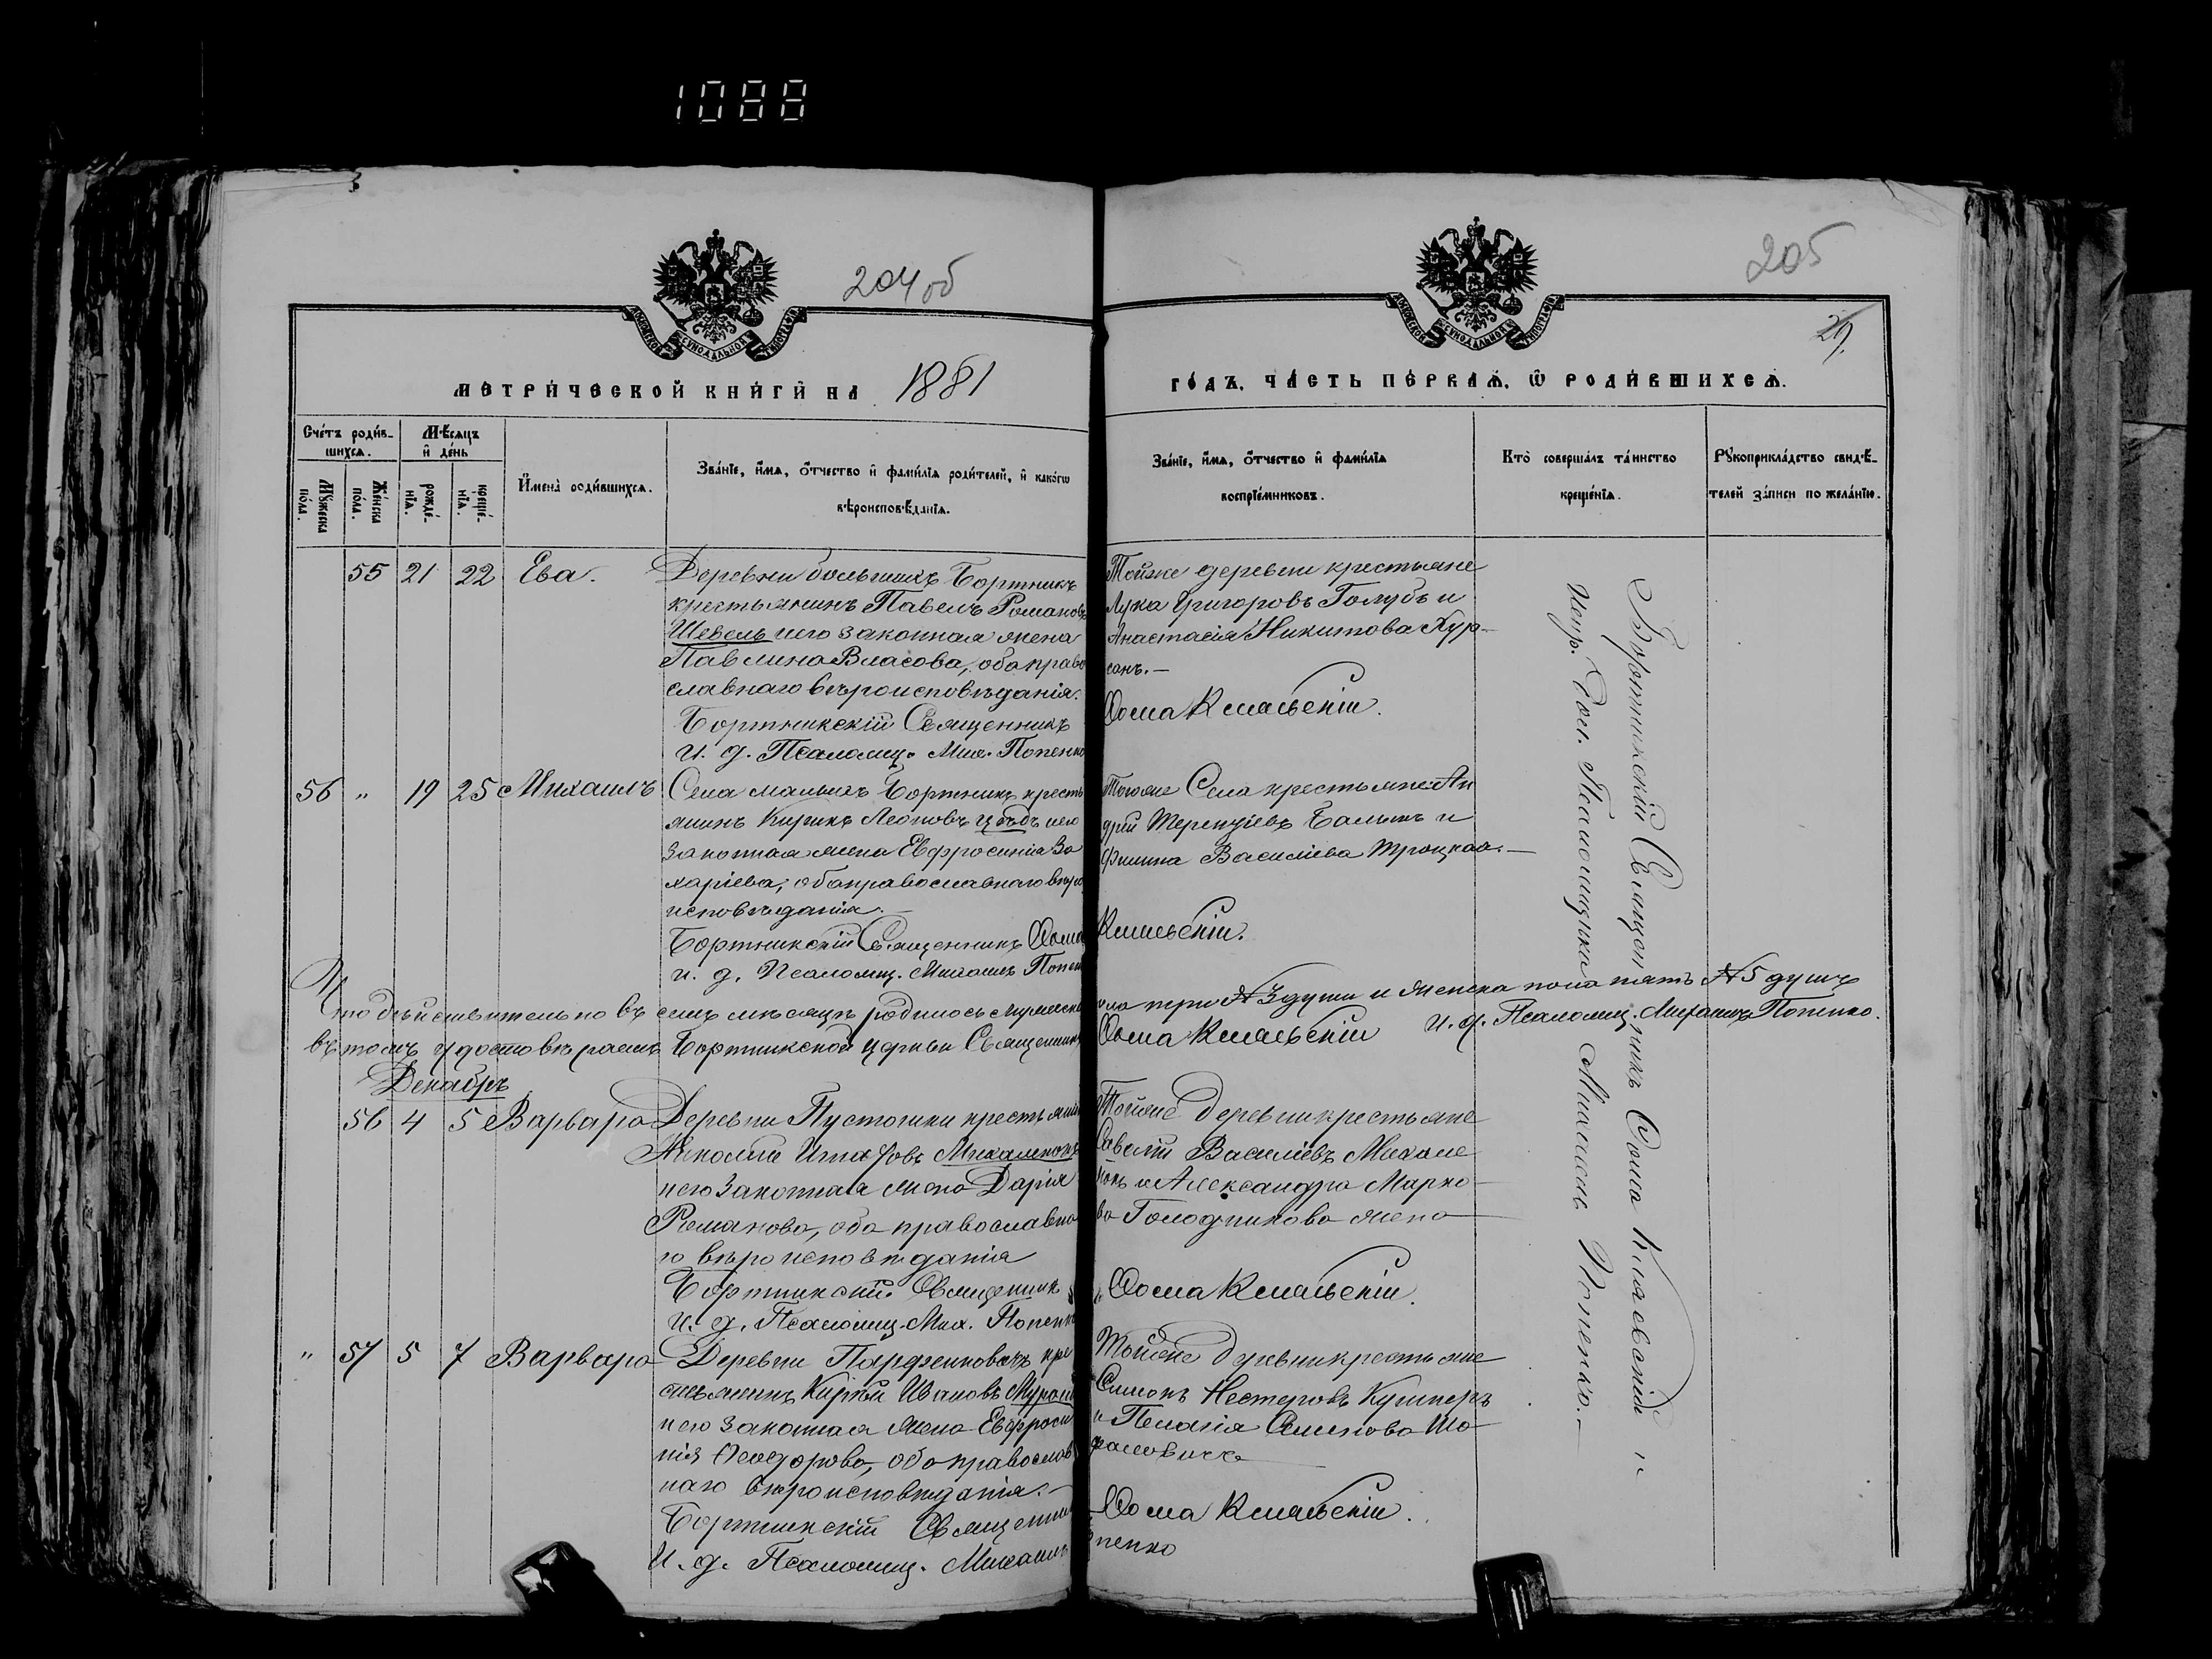 1088
204 об
205
29.
МЕТРИ́ЧЕСКОЙ КНИ́ГИ НА 1881
ГО́ДЪ, ЧА́СТЬ ПЕ́РВАѦ, Ѽ РОДИ́ВШИХСѦ.
Сче́тъ роди́в-
шихсѧ.
Мꙋ́жеска по́ла.
Же́нска по́ла.
М҃ѣсѧцъ и҆ де́нь
рожде́-
нїѧ.
креще́-
нїѧ.
И҆мена̀ роди́вшихсѧ.
Зва́нїе, и҆́мѧ, ѻ҆́тчество и҆ фами́лїѧ роди́телей, и҆ како́гѡ
вѣроисповѣ́данїѧ.
Зва́нїе, и҆́мѧ, ѻ҆́тчество и҆ фами́лїѧ
воспрїе́мниковъ.
Кто̀ соверша́лъ та́инство
креще́нїѧ.
Рꙋкоприкла́дство свидѣ́-
телей за́писи по жела́нїю.
55 21 22 Ева.
Деревни большихъ Бортникъ
крестьянинъ Павелъ Романовъ
Шевель и его законная жена
Павлина Власова, оба право
славнаго вѣроисповѣданія.
Бортникскій Священникъ
И. д. Псаломщ. Мих. Попенко
Тойже деревни крестьяне
Лука Григоровъ Голубъ и
Анастасія Никитова Кур-
санъ.—
Ѳома
56 " 19 25 Михаилъ
Села малыхъ Бортникъ кресть
янинъ Леоновъ и его
законная жена Евфросинія За
харіева, оба православнаго вѣро
исповѣданія.
Бортникскій Священникъ Ѳома
и. д. Псаломщ. Михаилъ Попен
Тогоже Села крестьяне Ан
дрей Терентіевъ и
Васильева Троцкая.—
Что дѣйствительно въ семъ мѣсяцѣ родилось мужеска
пола три № 3 души и женска пола пять № 5 душъ
въ томъ удостовѣряемъ Бортникской церкви Священникъ
Ѳома И. д. Псаломщ. Михаилъ Попенко.
Декабрь
56 4 5 Варвара
Деревни Пустошки крестьянинъ
Николай Михаленокъ
и его законная жена Дарія
Романова, оба православна
го вѣроисповѣданія
Бортникскій Священникъ
И. д. Псаломщ. Мих. Попенк
Тойже деревни крестьяне
Савелій Васильевъ Михале
нокъ и Александра Марко
ва Голодникова жена
Ѳома
" 57 5 7 Варвара
Деревни Парфенковичъ кре
стьянинъ Ивановъ
и его законная жена Евфроси
нія Ѳеодорова, оба православ
наго вѣроисповѣданія.—
Бортникскій Священник
И. д. Псаломщ. Михаилъ
Тойже деревни крестьяне
Симонъ Нестеровъ Кушнеръ
и Пелагія Семенова
Ѳома
пенко
Бортникскій Священникъ Ѳома и
Испр. Дол. Псаломщика Михаилъ Попенко.—